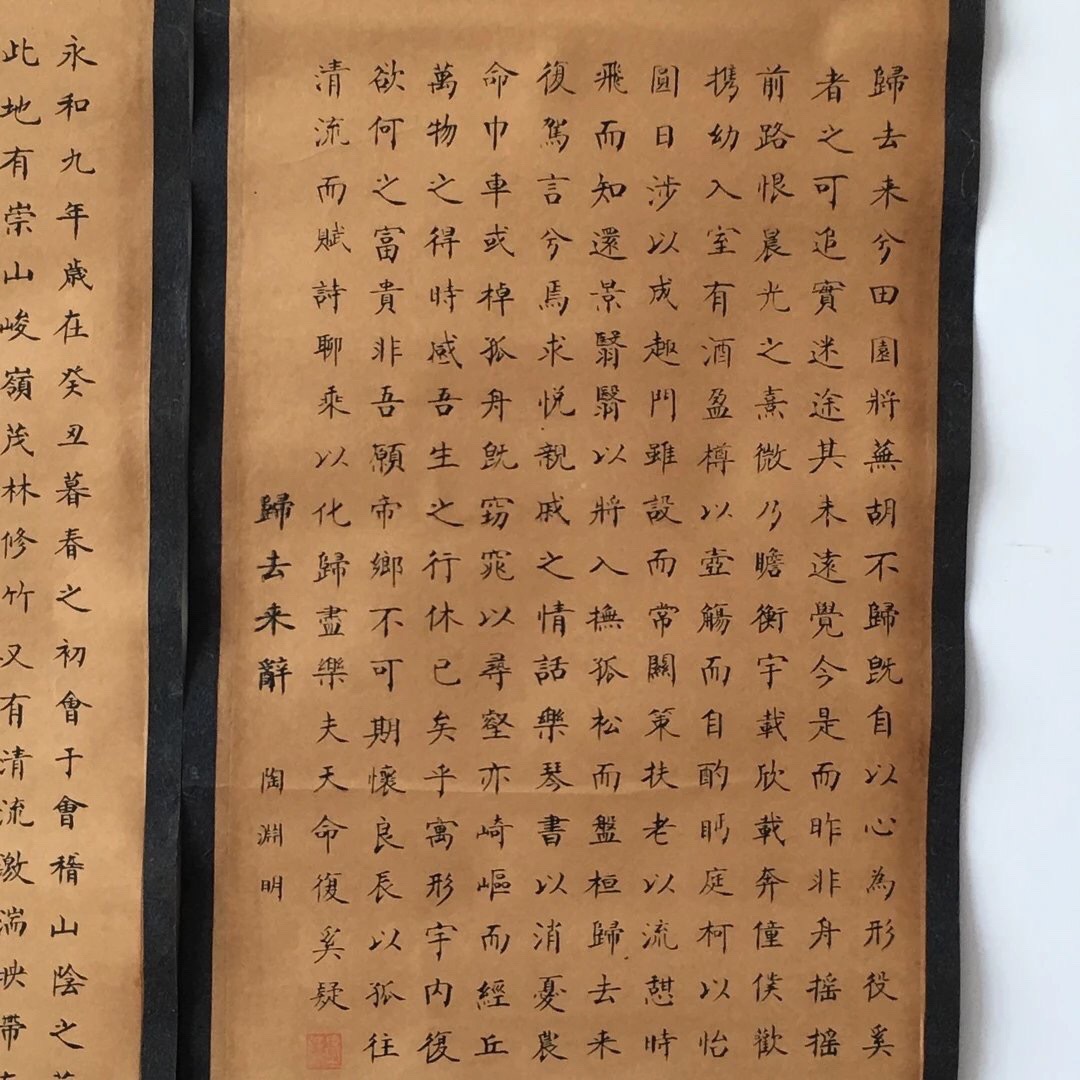 歸去来兮田園將蕪胡不歸旣自以心為形役奚
者之可追實迷途其未遠覺今是而昨非舟摇摇
前路恨晨光之熹微乃瞻衡宇載欣載奔僮僕歡
携幼入室有酒盈樽以壺觴而自酌眄庭柯以怡
圓日涉以成趣門雖設而常關策扶老以流憇時
飛而知還景翳翳以將入撫孤松而盤桓歸去来
復駕言兮焉求悦親戚之情話樂琴書以消憂農
命巾車或棹孤舟旣窈窕以尋壑亦崎嶇而經丘
萬物之得時感吾生之行休已矣乎寓形宇内復
欲何之富貴非吾願帝鄉不可期懷良辰以孤往
清流而賦詩聊乘以化歸盡樂夫天命復奚疑
歸去来辭 陶淵明
永和九年歲在癸丑暮春之初會于會稽山陰之
此地有崇山峻嶺茂林修竹又有清流激湍映帶